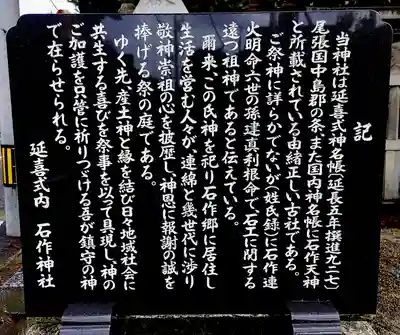 記
当神社は延喜式神名帳(延長五年撰進九二七)
尾張国中島郡の条、また国内神名帳に石作天神
と所載されている由緒正しい古社である。
ご祭神に詳らかでないが(姓氏録)に石作連
火明命六世の孫建真利根命て、石工に関する
遠つ祖神であると伝えている。
爾来、この氏神を祀り石作郷に居住し
生活を営む人々が、連綿と幾世代に渉り
敬神崇祖の心を披歴し、神恩に報謝の誠を
捧げる祭の庭である。
ゆく先、産土神と縁を結び日々地域社会に
共生する喜びを祭事を以って具現し、神の
ご加護を只管に祈りつづける吾が鎮守の神
で在らせられる。
延喜式内 石作神社